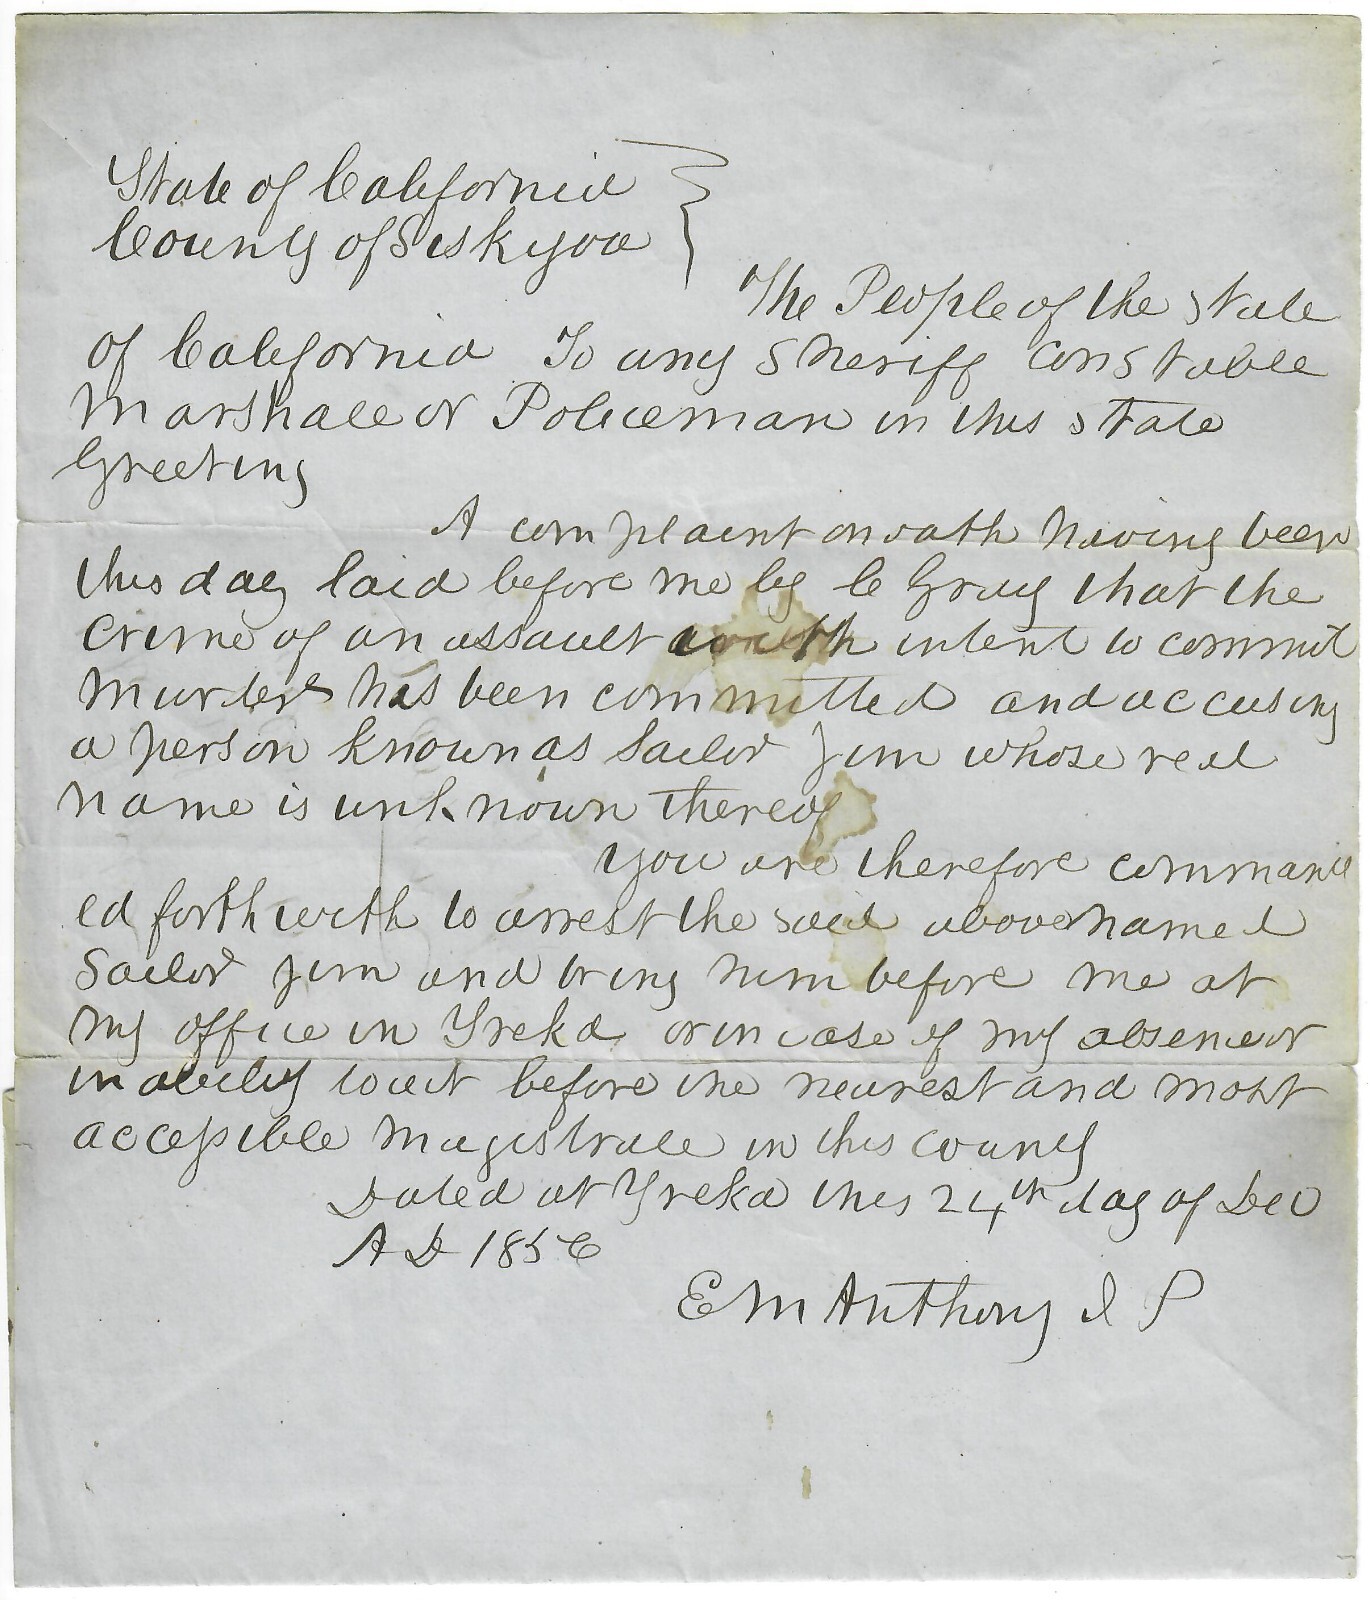 State of California
County of Siskyou
The People of the State
of California To any Sheriff Constable
Marshall or Policeman in this State
Greeting
A complaint on oath having been
this day laid before me by C Gray that the
crime of an assault with intent to commit
murder has been committed and accusing
a person known as Sailor Jim whose real
name is unknown thereof
You are therefore command
ed forthwith to arrest the said above named
Sailor Jim and bring him before me at
my office in Yreka or in case of my absence or
inability to act before the nearest and most
accessible magistrate in this county
Dated at Yreka this 24th day of Dec
A D 1856
E M Anthony J P